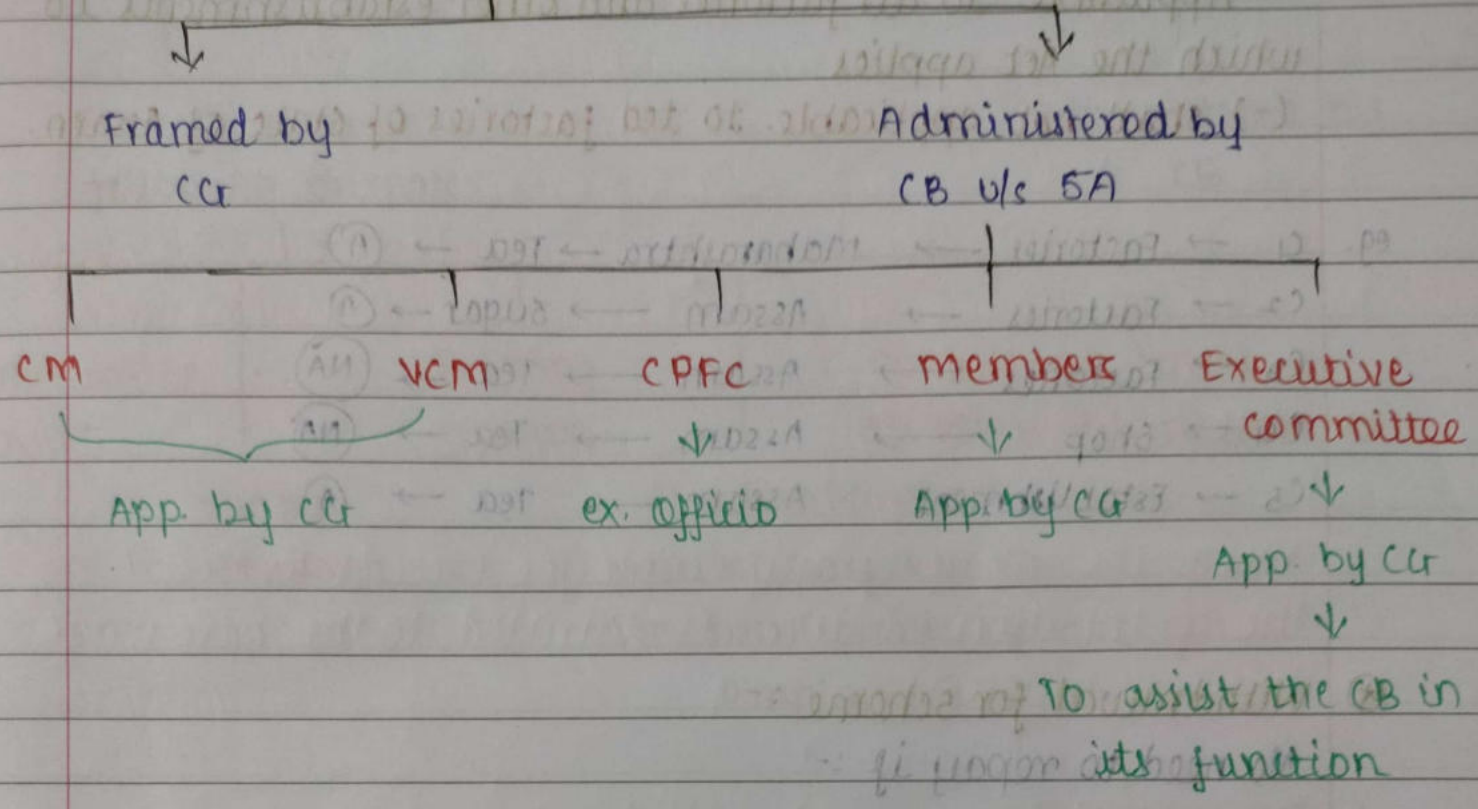 Framed by Administered by
CG CB U/s 5A
CM VCM CPFC members Executive
committee
App. by CG ex. officio App. by CG
App. by CG
To assist the CB in
its function